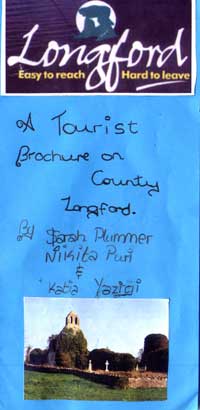 Longford
Easy to reach Hard to leave
A Tourist
Brochure on
County
Longford.
By Sarah Plummer
Nikita Puri
&
Katia Yaziji